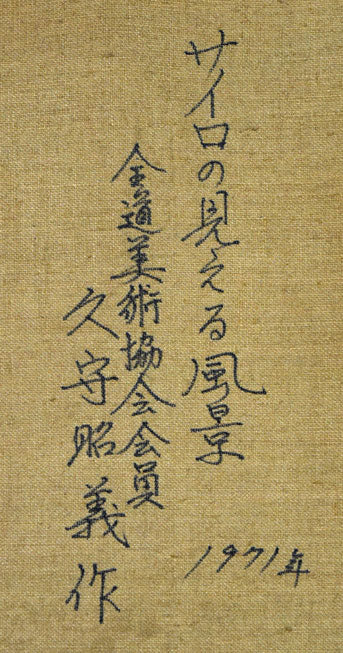 サイロの見える風景
1971年
全道美術協会会員
久守昭義作